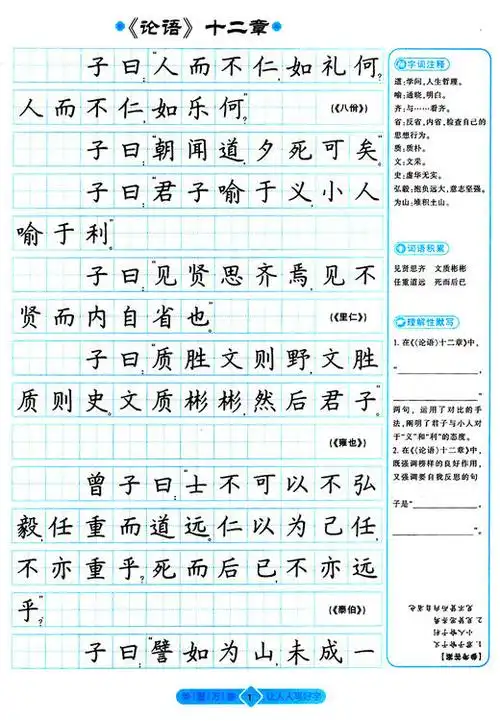 《论语》十二章
子曰:“人而不仁,如礼何?
人而不仁,如乐何?”(《八佾》)
子曰:“朝闻道,夕死可矣。”
子曰:“君子喻于义,小人
喻于利。”
子曰:“见贤思齐焉,见不
贤而内自省也。”(《里仁》)
子曰:“质胜文则野,文胜
质则史。文质彬彬,然后君子。”
(《雍也》)
曾子曰:“士不可以不弘
毅,任重而道远。仁以为己任,
不亦重乎?死而后已,不亦远
乎?”(《泰伯》)
子曰:“譬如为山,未成一
字词注释
道:学问,人生哲理。
喻:通晓,明白。
齐:与……看齐。
省:反省,内省,检查自己的
思想行为。
质:质朴。
文:文采。
史:虚华无实。
弘毅:抱负远大,意志坚强。
为山:堆积土山。
词语积累
见贤思齐 文质彬彬
任重道远 死而后已
理解性默写
1. 在《〈论语〉十二章》中,
“____________,
____________”
两句,运用了对比的手
法,阐明了君子与小人对
于“义”和“利”的态度。
2. 在《〈论语〉十二章》中,
既强调榜样的良好作用,
又强调要自我反思的句
子是“____________,
____________”。
【参考答案】
1. 君子喻于义
小人喻于利
2. 见贤思齐焉
见不贤而内自省也
1
让人人写好字